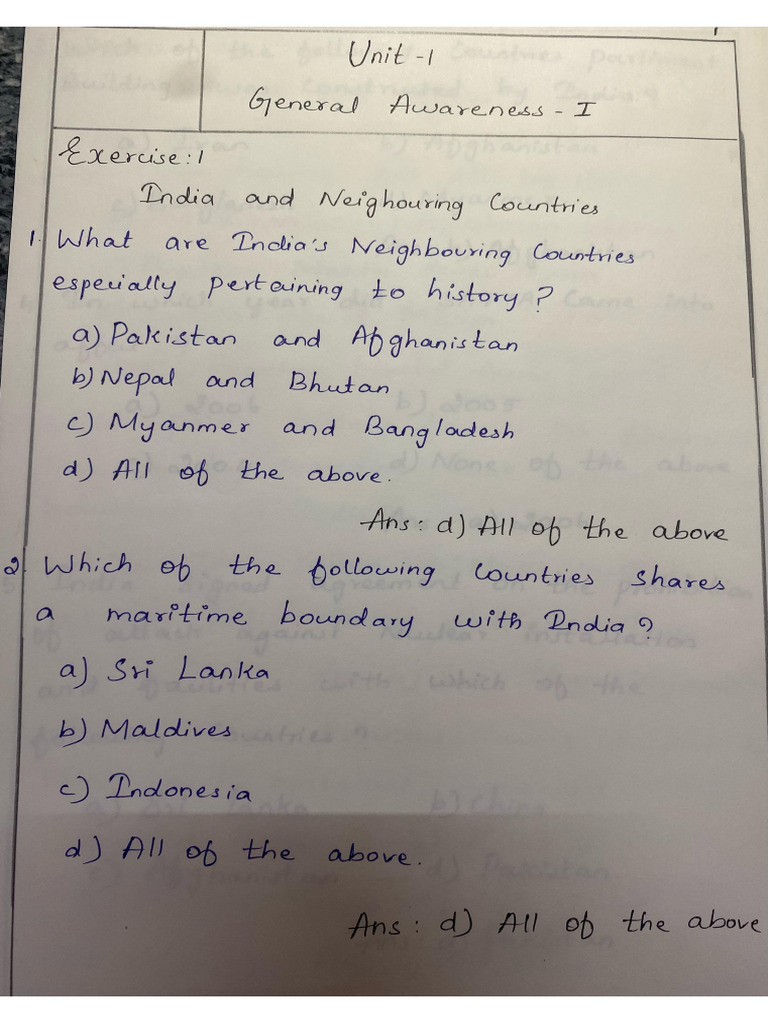 Unit -1
General Awareness - I
Exercise: 1
India and Neighouring Countries
1. What are India's Neighbouring Countries
especially pertaining to history?
a) Pakistan and Afghanistan
b) Nepal and Bhutan
c) Myanmer and Bangladesh
d) All of the above.
Ans: d) All of the above
2. Which of the following Countries shares
a maritime boundary with India?
a) Sri Lanka
b) Maldives
c) Indonesia
d) All of the above.
Ans: d) All of the above